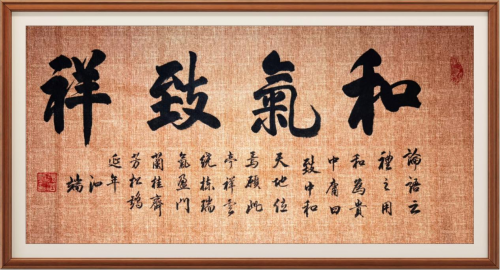 和氣致祥
論語云
禮之用
和為貴
中庸曰
致中和
天地位
焉願此
亭祥雲
繞棟瑞
氣盈門
蘭桂齊
芳松鶴
延年
端